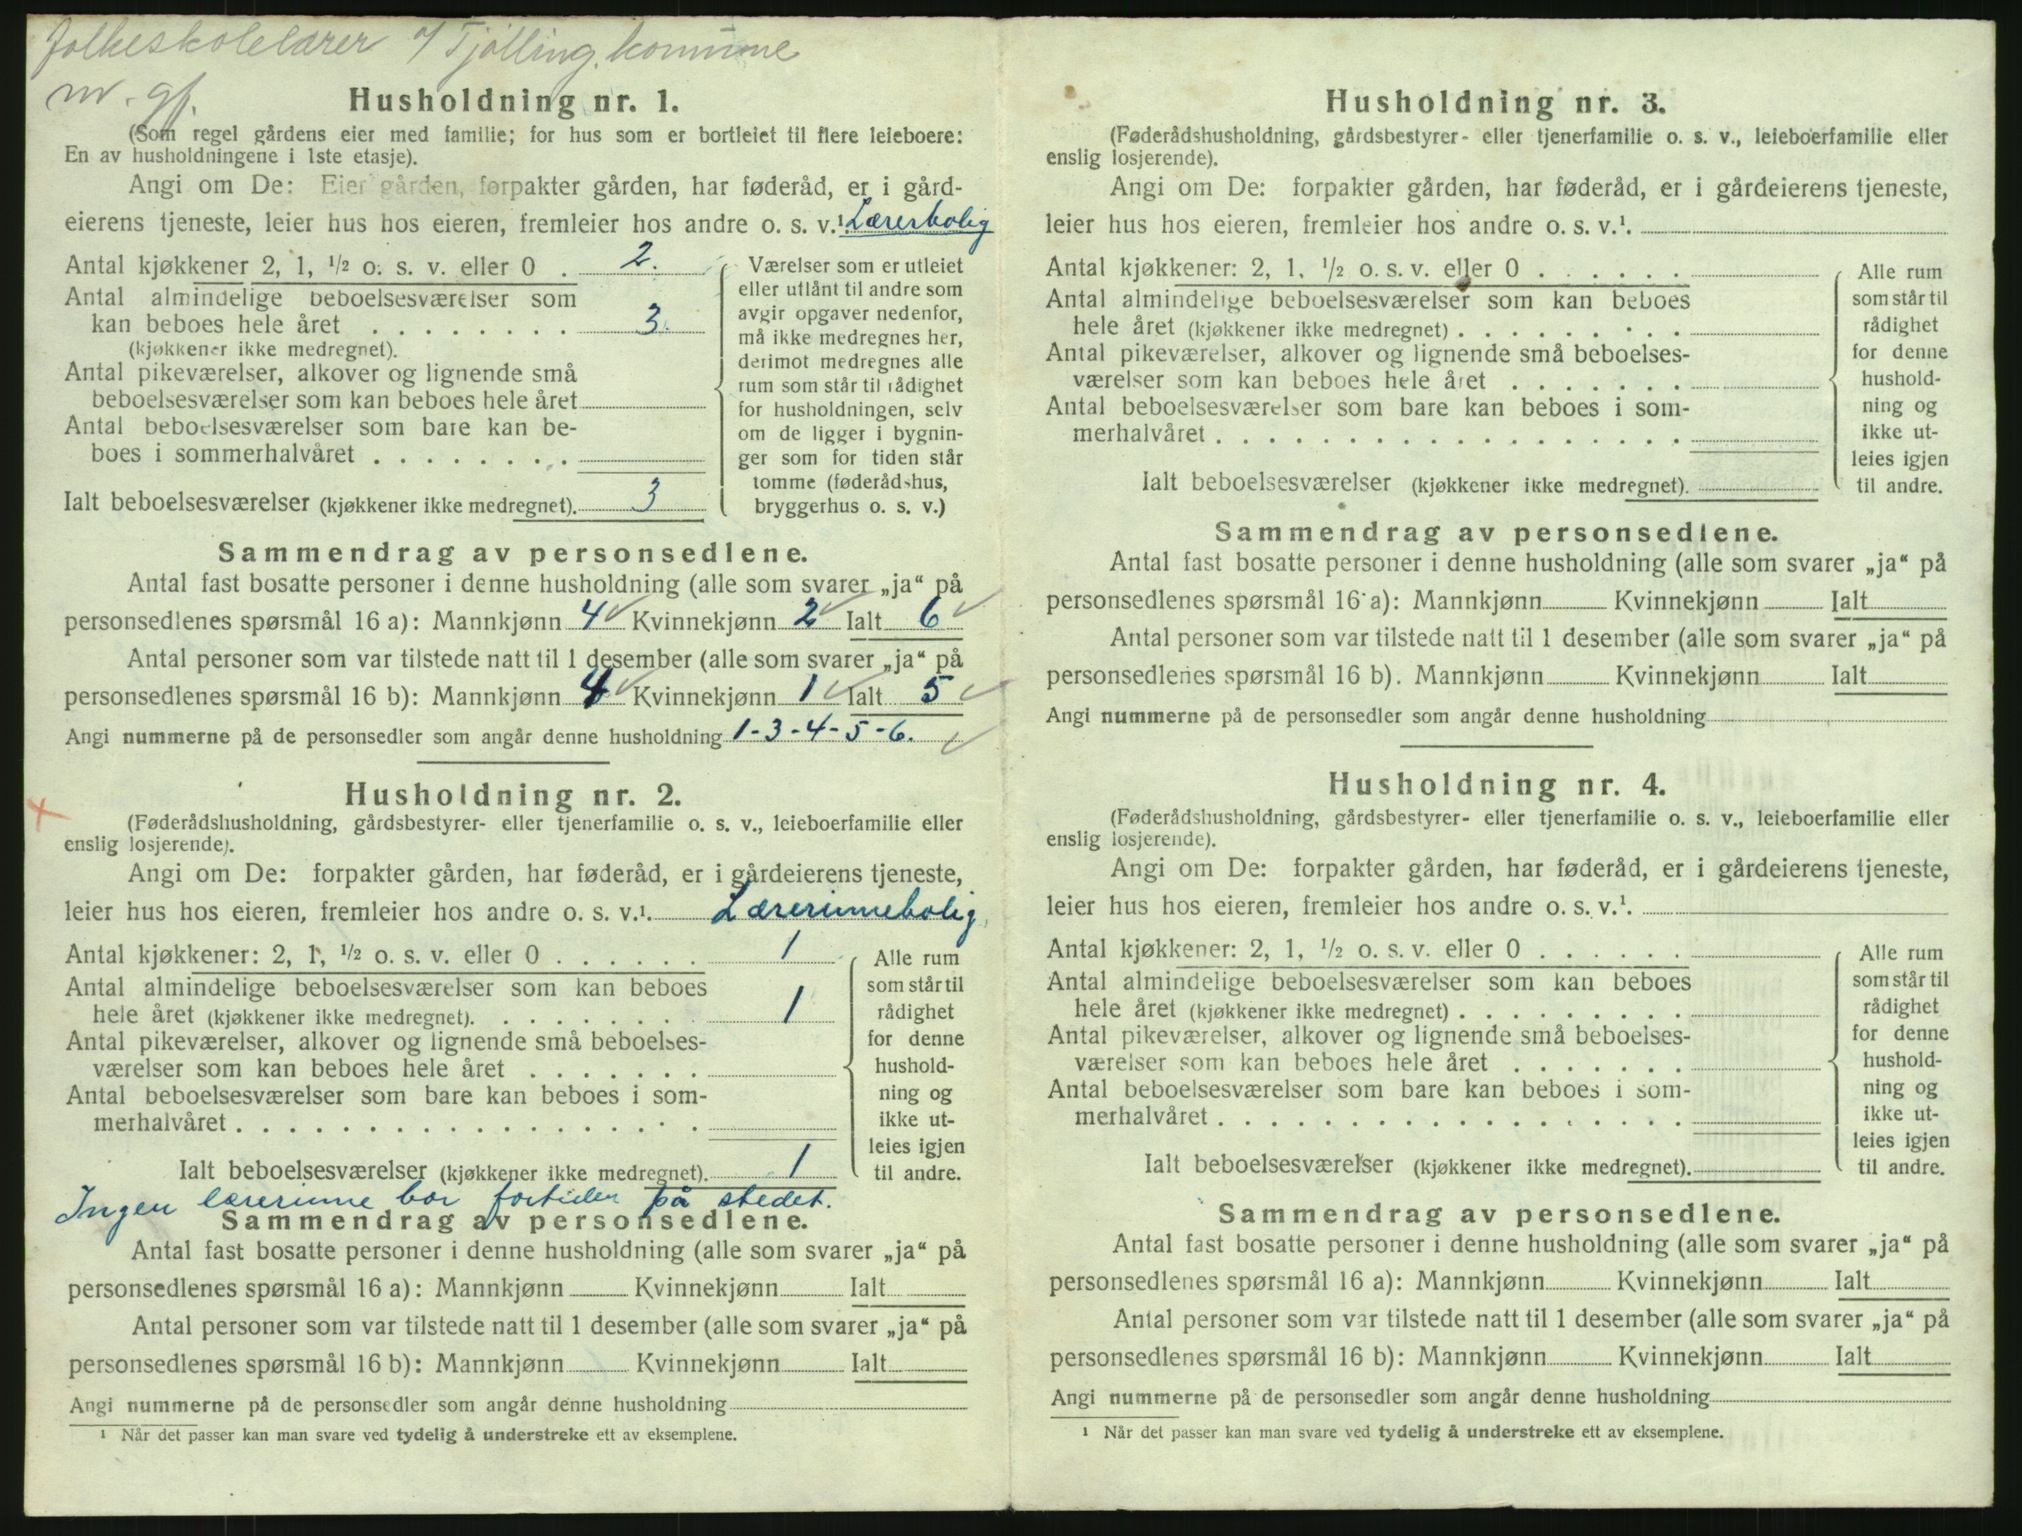 Folkeskolelærer i/ Tjølling komune
Husholdning nr. 1.
(Som regel gårdens eier med familie; for hus som er bortleiet til flere leieboere:
En av husholdningene i 1ste etasje).
Angi om De: Eier gården, forpakter gården, har føderåd, er i gård-
eierens tjeneste, leier hus hos eieren, fremleier hos andre o. s. v.¹ Lærerbolig
Antal kjøkkener 2, 1, ½ o. s. v. eller 0 . 2.
Antal almindelige beboelsesværelser som
kan beboes hele året . . . . . . . . 3.
(kjøkkener ikke medregnet).
Antal pikeværelser, alkover og lignende små
beboelsesværelser som kan beboes hele året
Antal beboelsesværelser som bare kan be-
boes i sommerhalvåret . . . . . . . .
Ialt beboelsesværelser (kjøkkener ikke medregnet). 3
Værelser som er utleiet
eller utlånt til andre som
avgir opgaver nedenfor,
må ikke medregnes her,
derimot medregnes alle
rum som står til rådighet
for husholdningen, selv
om de ligger i bygnin-
ger som for tiden står
tomme (føderådshus,
bryggerhus o. s. v.)
Sammendrag av personsedlene.
Antal fast bosatte personer i denne husholdning (alle som svarer „ja“ på
personsedlenes spørsmål 16 a): Mannkjønn 4 ✓ Kvinnekjønn 2 ✓ Ialt 6 ✓
Antal personer som var tilstede natt til 1 desember (alle som svarer „ja“ på
personsedlenes spørsmål 16 b): Mannkjønn 4 ✓ Kvinnekjønn 1 ✓ Ialt 5 ✓
Angi nummerne på de personsedler som angår denne husholdning 1-3-4-5-6. ✓
Husholdning nr. 2.
(Føderådshusholdning, gårdsbestyrer- eller tjenerfamilie o. s. v., leieboerfamilie eller
enslig losjerende).
Angi om De: forpakter gården, har føderåd, er i gårdeierens tjeneste,
leier hus hos eieren, fremleier hos andre o. s. v.¹. Lærerinnebolig
Antal kjøkkener: 2, 1, ½ o. s. v. eller 0 . . . . . . 1
Antal almindelige beboelsesværelser som kan beboes
hele året (kjøkkener ikke medregnet). . . . . . . . 1
Antal pikeværelser, alkover og lignende små beboelses-
værelser som kan beboes hele året . . . . . . .
Antal beboelsesværelser som bare kan beboes i som-
merhalvåret . . . . . . . . . . . . . . . . . .
Ialt beboelsesværelser (kjøkkener ikke medregnet). 1
Alle rum
som står til
rådighet
for denne
hushold-
ning og
ikke ut-
leies igjen
til andre.
Ingen lærerinne bor fortiden på stedet.
Sammendrag av personsedlene.
Antal fast bosatte personer i denne husholdning (alle som svarer „ja“ på
personsedlenes spørsmål 16 a): Mannkjønn Kvinnekjønn Ialt
Antal personer som var tilstede natt til 1 desember (alle som svarer „ja“ på
personsedlenes spørsmål 16 b): Mannkjønn Kvinnekjønn Ialt
Angi nummerne på de personsedler som angår denne husholdning
¹ Når det passer kan man svare ved tydelig å understreke ett av eksemplene.
Husholdning nr. 3.
(Føderådshusholdning, gårdsbestyrer- eller tjenerfamilie o. s. v., leieboerfamilie eller
enslig losjerende).
Angi om De: forpakter gården, har føderåd, er i gårdeierens tjeneste,
leier hus hos eieren, fremleier hos andre o. s. v.¹.
Antal kjøkkener: 2, 1, ½ o. s. v. eller 0 . . . . . .
Antal almindelige beboelsesværelser som kan beboes
hele året (kjøkkener ikke medregnet) . . . . . . . . .
Antal pikeværelser, alkover og lignende små beboelses-
værelser som kan beboes hele året . . . . . . .
Antal beboelsesværelser som bare kan beboes i som-
merhalvåret . . . . . . . . . . . . . . . . . .
Ialt beboelsesværelser (kjøkkener ikke medregnet).
Alle rum
som står til
rådighet
for denne
hushold-
ning og
ikke ut-
leies igjen
til andre.
Sammendrag av personsedlene.
Antal fast bosatte personer i denne husholdning (alle som svarer „ja“ på
personsedlenes spørsmål 16 a): Mannkjønn Kvinnekjønn Ialt
Antal personer som var tilstede natt til 1 desember (alle som svarer „ja“ på
personsedlenes spørsmål 16 b). Mannkjønn Kvinnekjønn Ialt
Angi nummerne på de personsedler som angår denne husholdning
Husholdning nr. 4.
(Føderådshusholdning, gårdsbestyrer- eller tjenerfamilie o. s. v., leieboerfamilie eller
enslig losjerende).
Angi om De: forpakter gården, har føderåd, er i gårdeierens tjeneste,
leier hus hos eieren, fremleier hos andre o. s. v.¹.
Antal kjøkkener: 2, 1, ½ o. s. v. eller 0 . . . . . .
Antal almindelige beboelsesværelser som kan beboes
hele året (kjøkkener ikke medregnet) . . . . . . . . .
Antal pikeværelser, alkover og lignende små beboelses-
værelser som kan beboes hele året . . . . . . .
Antal beboelsesværelser som bare kan beboes i som-
merhalvåret . . . . . . . . . . . . . . . . . .
Ialt beboelsesværelser (kjøkkener ikke medregnet).
Alle rum
som står til
rådighet
for denne
hushold-
ning og
ikke ut-
leies igjen
til andre.
Sammendrag av personsedlene.
Antal fast bosatte personer i denne husholdning (alle som svarer „ja“ på
personsedlenes spørsmål 16 a): Mannkjønn Kvinnekjønn Ialt
Antal personer som var tilstede natt til 1 desember (alle som svarer „ja“ på
personsedlenes spørsmål 16 b): Mannkjønn Kvinnekjønn Ialt
Angi nummerne på de personsedler som angår denne husholdning
¹ Når det passer kan man svare ved tydelig å understreke ett av eksemplene.